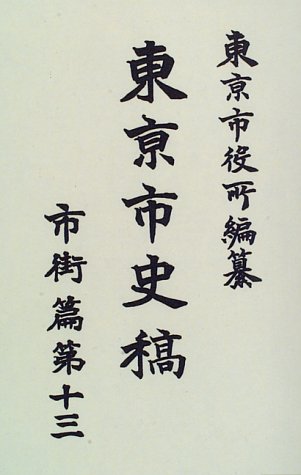 東京市役所編纂
東京市史稿
市街篇第十三